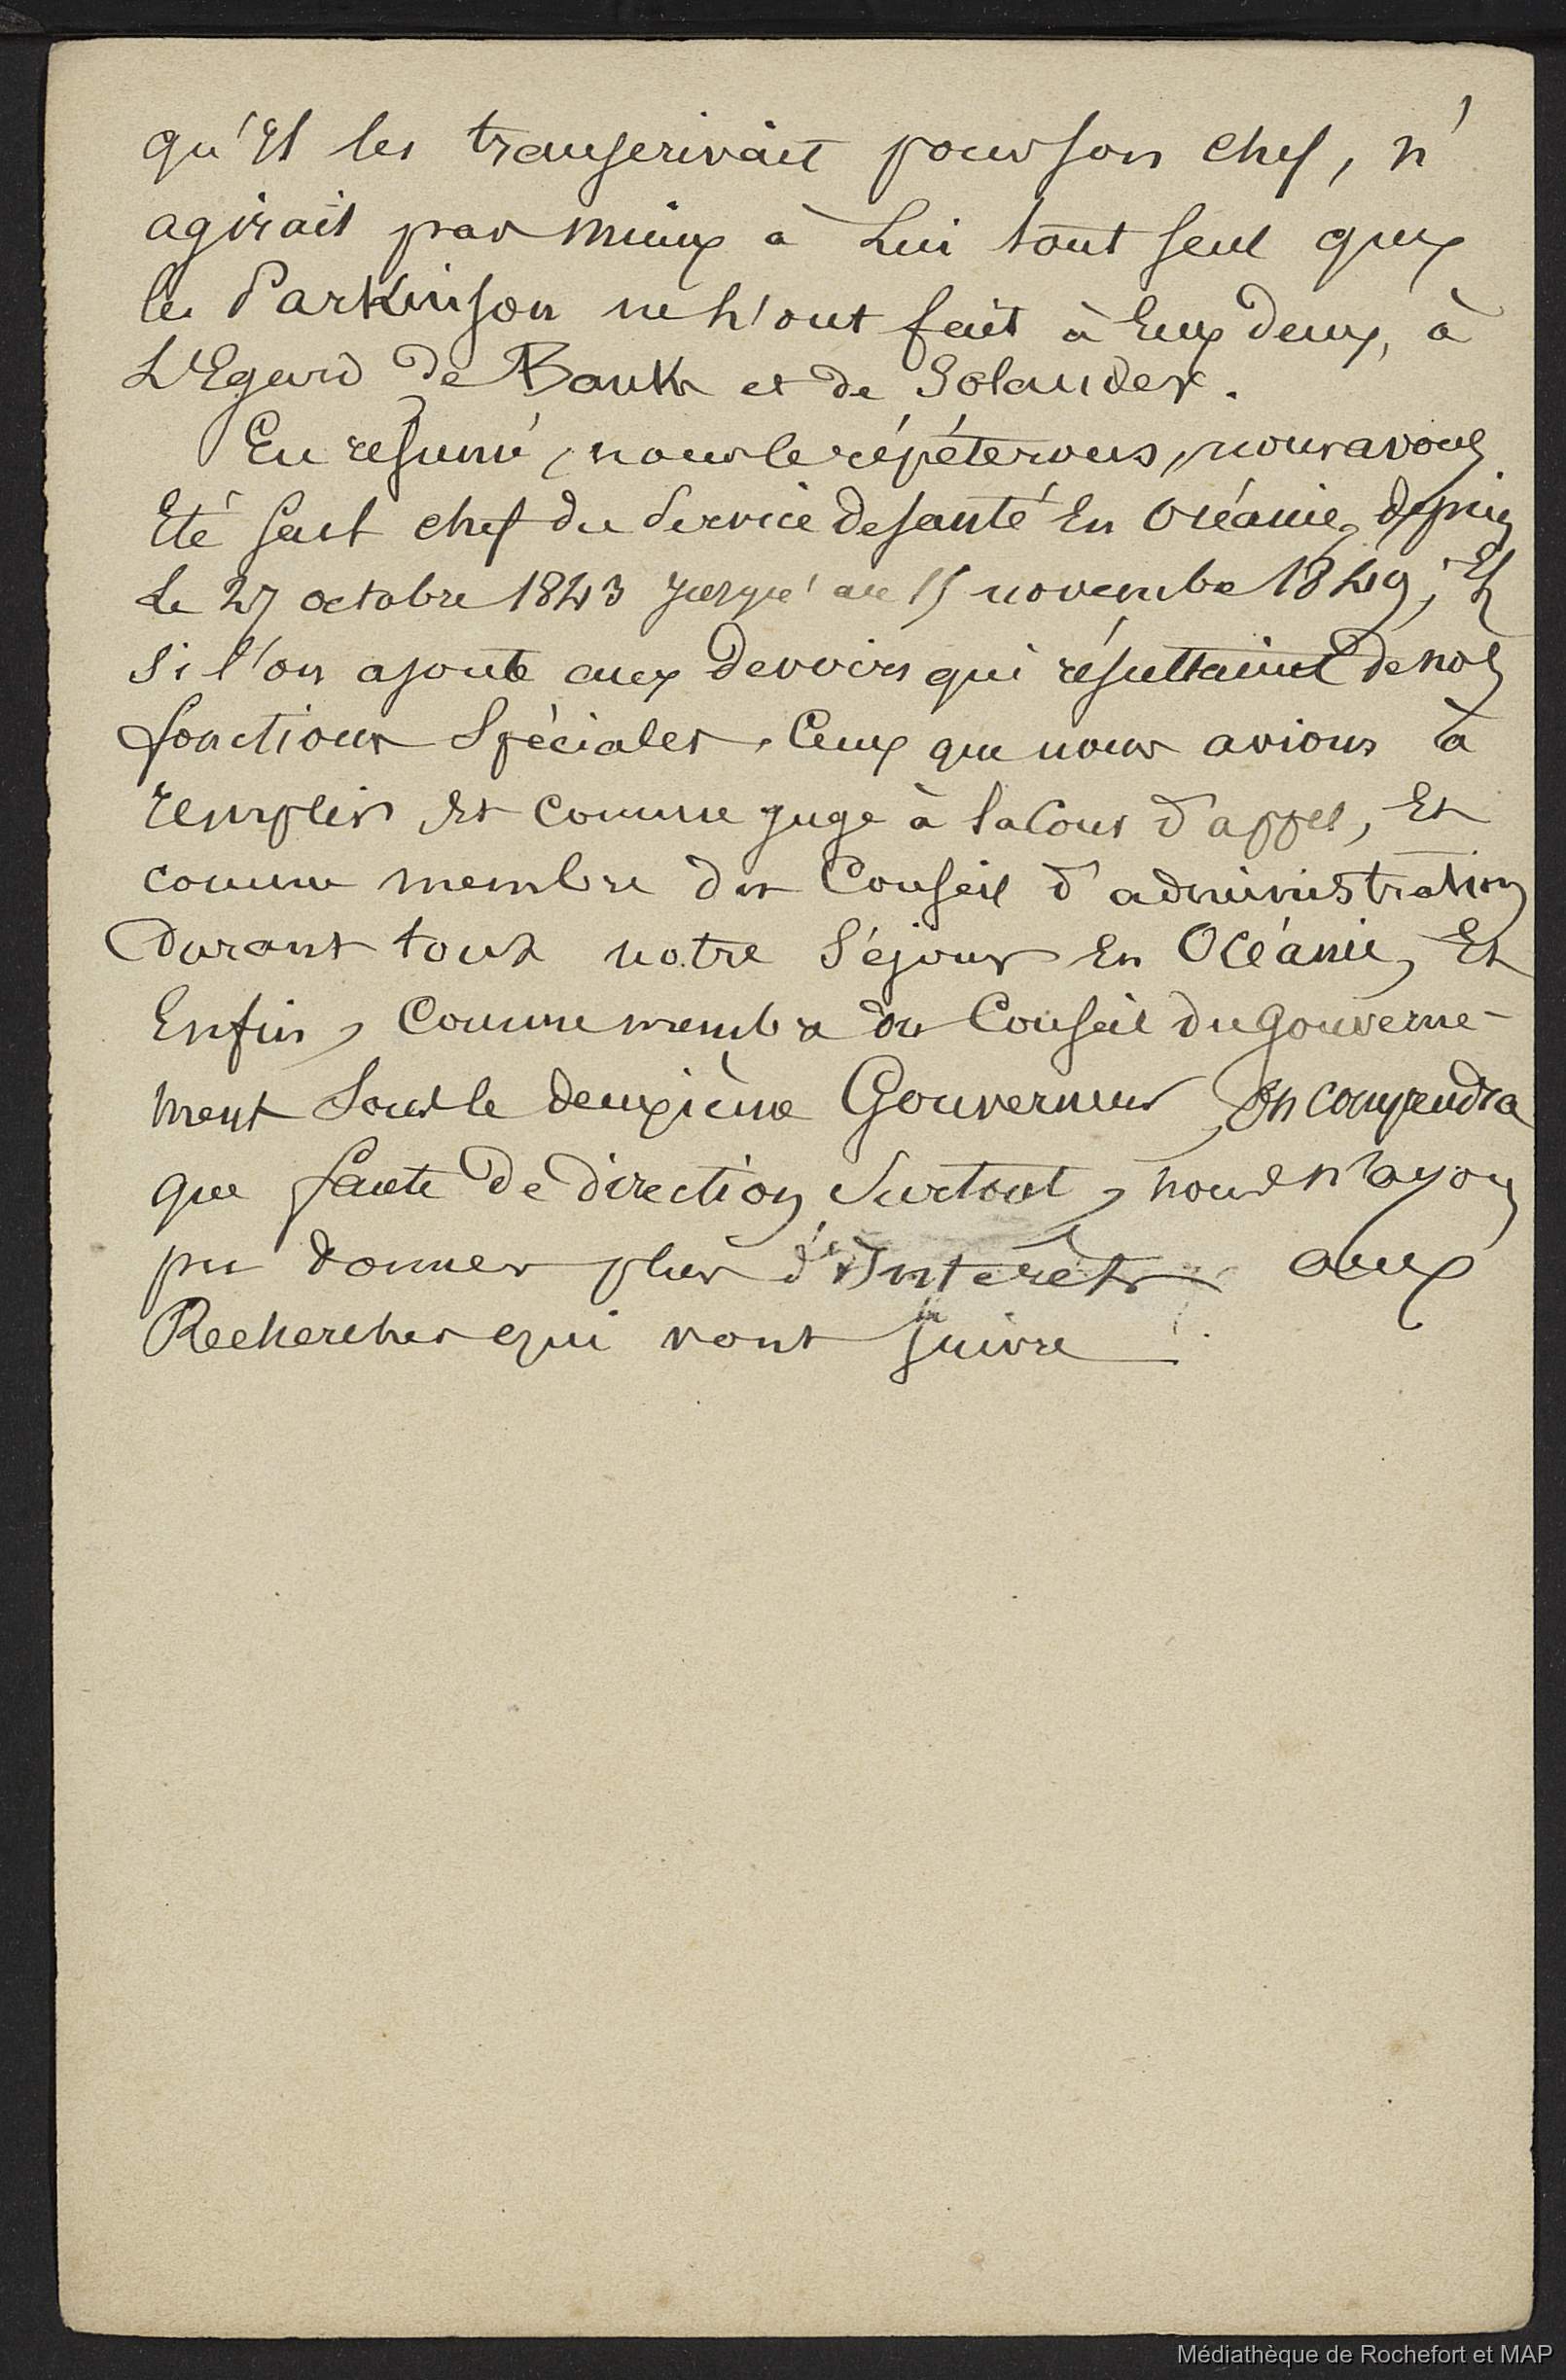 qu'Il les transcrivait pour son chef, n'
agirait pas mieux à Lui tout seul que
les Parkinson ne l'ont fait à Eux deux, à
L'Egard de Banks et de Solander.
En résumé, nous le répéterons, nous avons
Eté seul chef du Service de santé En Océanie, depuis
Le 27 octobre 1843 jusqu'au 15 novembre 1849; Et
si l'on ajoute aux Devoirs qui résultaient de nos
fonctions Spéciales, Ceux que nous avions à
remplir Et comme juge à la Cour d'appel, Et
comme membre du Conseil d'administration
Durant tout notre Séjour En Océanie, Et
Enfin, Comme membre du Conseil du gouverne-
ment Sous le deuxième Gouverneur, On comprendra
que faute de direction Surtout, nous n'ayons
pu donner plus d'Intérêt aux
Recherches qui vont suivre.
Médiathèque de Rochefort et MAP